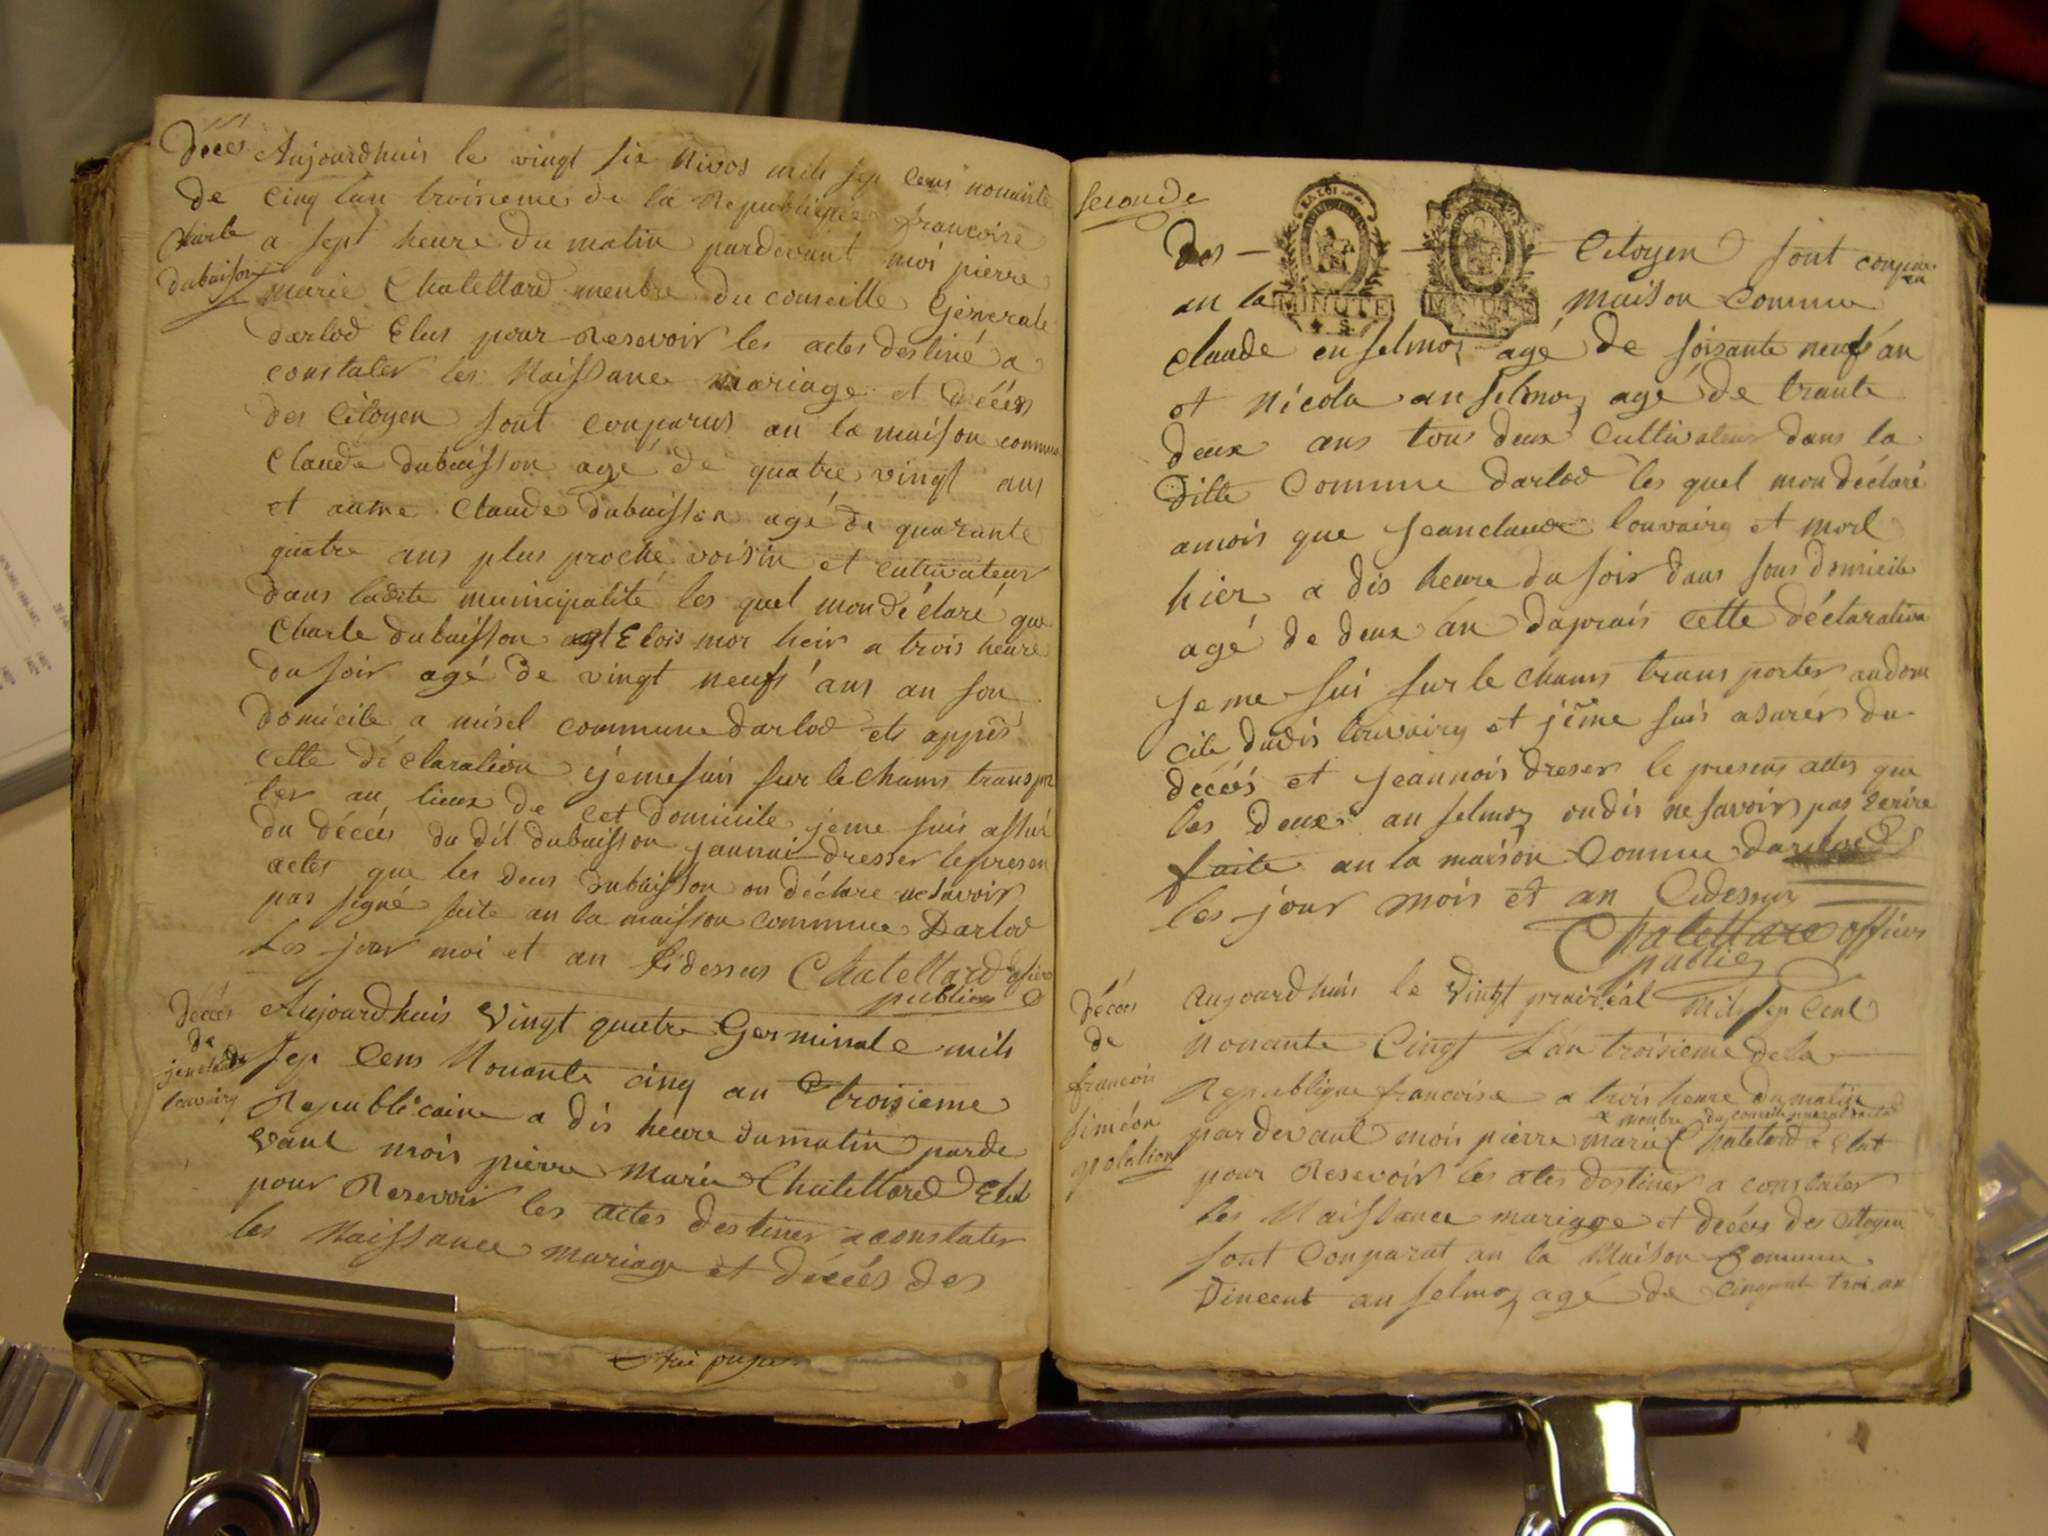 Décés Aujourdhuis le vingt six Nivos mils sep cens nonante
de cinq lan troisieme de la Republique francoise
Charle a sept heure du matin pardevant mois pierre
dubuisson marie Chatellard menbre du conseille Generale
darlod Elus pour Resevoir les actes destiné a
constater les Naissance mariage et décés
des Citoyen sont conparus an la maison commune
Claude dubuisson agé de quatre vingt ans
et autre Claude dubuisson agé de quarante
quatre ans plus proche voisin et cultivateur
dans ladite municipalité les quel mon déclaré que
Charle dubuisson Elois mor heir a trois heure
du soir agé de vingt neufs ans an son
domicile a misel commune darlod et appres
cette déclaration jemesuis sur le chams transpor
ter au lieux de cet domicile jeme suis assuré
du décés du dit dubuisson jannai dresser lepresen
actes que les deus dubuisson on déclare nesavoir
pas signé faite an la maison commune Darlod
Les jour moi et an sidessus Chatellard ofsier
publique
Décés Aujourdhuis vingt quatre Germinale mils
de sep cens Nonante cinq an troisieme
jenclaude Republicaine a dis heure dumatin parde
louvairy vant mois pierre Marie Chatellard Elut
pour Resevoir les actes destiner a constater
les Naissance mariage et décés des
seconde
des Citoyen sont conparu
an la MINUTE MINUTE maison comune
claude enselmoz agé de soisante neufs an
et nicola anselmoz agé de trante
deux ans tous deux cultivateur dans la
ditte Comune darlod les quel mon déclaré
amois que jeanclaude louvairy et mort
hier a dis heure du soir dans sous domicile
agé de deux an daprais cette déclaration
je me suis sur le chams trans porter audomi
cile dudis louvairy et jeme suis asurer du
décés et jeannois dreser le presens actes que
les deux anselmoz ondis ne savoir pas écrire
faite an la maison Comune darlod
les jour mois et an Cidessus
Chatellard officier
public
Décés Aujourdhuis le vingt prairéal Mils sep Cent
de Nonante Cinqt Lan troisieme dela
francois Republique francoise a trois heure du matin
x menbre du conseile general darlod
siméon pardevant mois pierre marie Chatelard x Elut
polation pour Resevoir les actes destiner a constater
les Naissance mariage et décés des Citoyen
sont Conparut an la Maison Comune
Vincent anselmoz agé de cinquante trois an